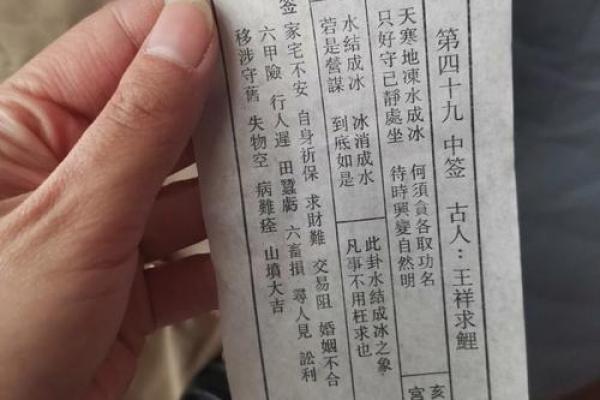 第四十九 中签 古人：王祥求鯉
天寒地凍水成冰 何須貪各取功名
只好守己靜處坐 待時興變自然明
亥
宮
水結成冰 冰消成水
若是營謀 到底如是
此卦水結成冰之象
凡事不用枉求也
签
家宅不安 自身祈保 求財難 交易阻 婚姻不合
六甲險 行人遲 田蠶虧 六畜損 尋人見 訟利
移涉守舊 失物空 病難痊 山墳大吉